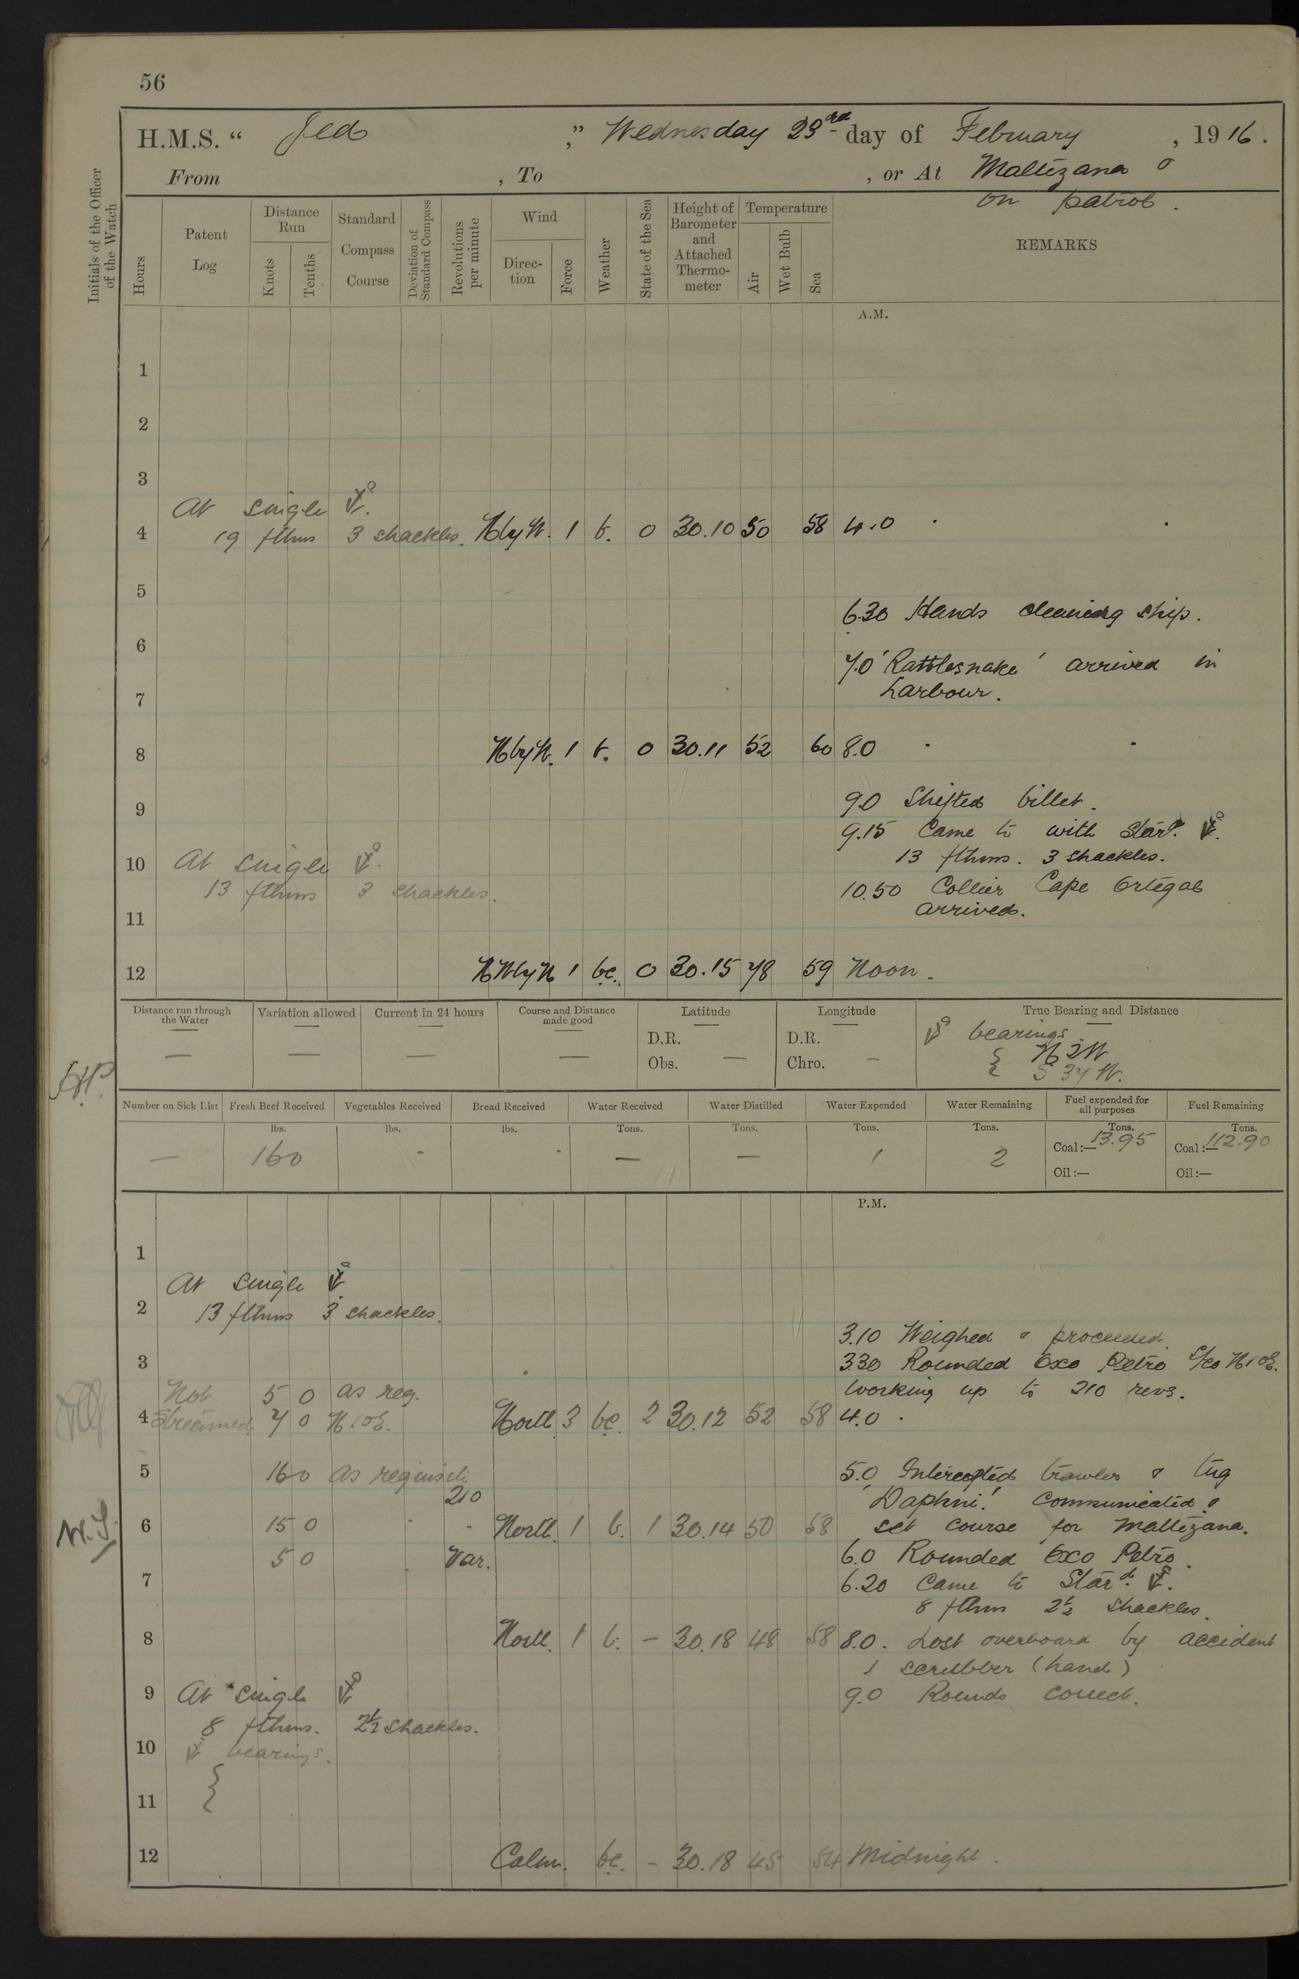 56
H.M.S. “ Jed ,” Wednesday 23rd day of February , 1916.
From , To , or At Maltezana &
on patrol.
Initials of the Officer of the Watch
Hours
Patent Log
Distance Run
Knots
Tenths
Standard Compass Course
Deviation of Standard Compass
Revolutions per minute
Wind
Direction
Force
Weather
State of the Sea
Height of Barometer and Attached Thermometer
Temperature
Air
Wet Bulb
Sea
REMARKS
A.M.
1
2
3
At single ⚓.
4 19 fthms 3 shackles. NbyW. 1 b. 0 30.10 50 58 4.0
5
6.30 Hands cleaning ship.
6
7.0 'Rattlesnake' arrived in
7 harbour.
8 NbyW. 1 b. 0 30.11 52 60 8.0
9.0 Shifted billet.
9
9.15 Came to with Starᵈ. ⚓.
10 At single ⚓. 13 fthms. 3 shackles.
13 fthms 3 shackles. 10.50 Collier Cape Ortegal
11 arrived.
12 NWbyN 1 bc. 0 30.15 48 59 Noon.
Distance run through the Water
—
Variation allowed
—
Current in 24 hours
—
Course and Distance made good
—
Latitude
D.R.
Obs. —
Longitude
D.R.
Chro. —
True Bearing and Distance
⚓ bearings
{ N 2 W
S 37 W.
Number on Sick List
—
Fresh Beef Received
lbs.
160
Vegetables Received
lbs.
Bread Received
lbs.
Water Received
Tons.
—
Water Distilled
Tons.
—
Water Expended
Tons.
1
Water Remaining
Tons.
2
Fuel expended for all purposes
Tons.
Coal:— 13.95
Oil:—
Fuel Remaining
Tons.
Coal:— 112.90
Oil:—
P.M.
1
At single ⚓
2 13 fthms 3 shackles.
3.10 Weighed & proceeded.
3 3.30 Rounded Exo Petro c/co N10E.
Not 5 0 as req. working up to 210 revs.
4 Streamed 7 0 N10E. North 3 bc. 2 30.12 52 58 4.0
5 16 0 as requisite 5.0 Intercepted trawler & tug
210 'Daphni'. Communicated &
6 15 0 North 1 b. 1 30.14 50 58 set course for Maltezana.
5 0 Var. 6.0 Rounded Exo Petro.
7 6.20 Came to Starᵈ. ⚓.
8 fthms 2½ shackles.
8 North 1 b. — 30.18 48 58 8.0. Lost overboard by accident
1 scrubber (hand)
9 At single ⚓ 9.0 Rounds correct.
8 fthms. 2½ shackles.
10 ⚓ bearings.
11 {
12 Calm. bc. — 30.18 45 54 Midnight.
W.S.